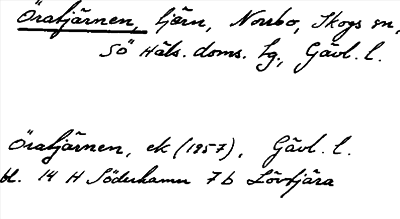 Öratjärnen, tjärn, Norrbo, Skogs sn,
Sö Häls. doms. lg, Gävl. l.
Öratjärnen, ek (1957), Gävl. l.
bl. 14 H Söderhamn 7b Lövtjära